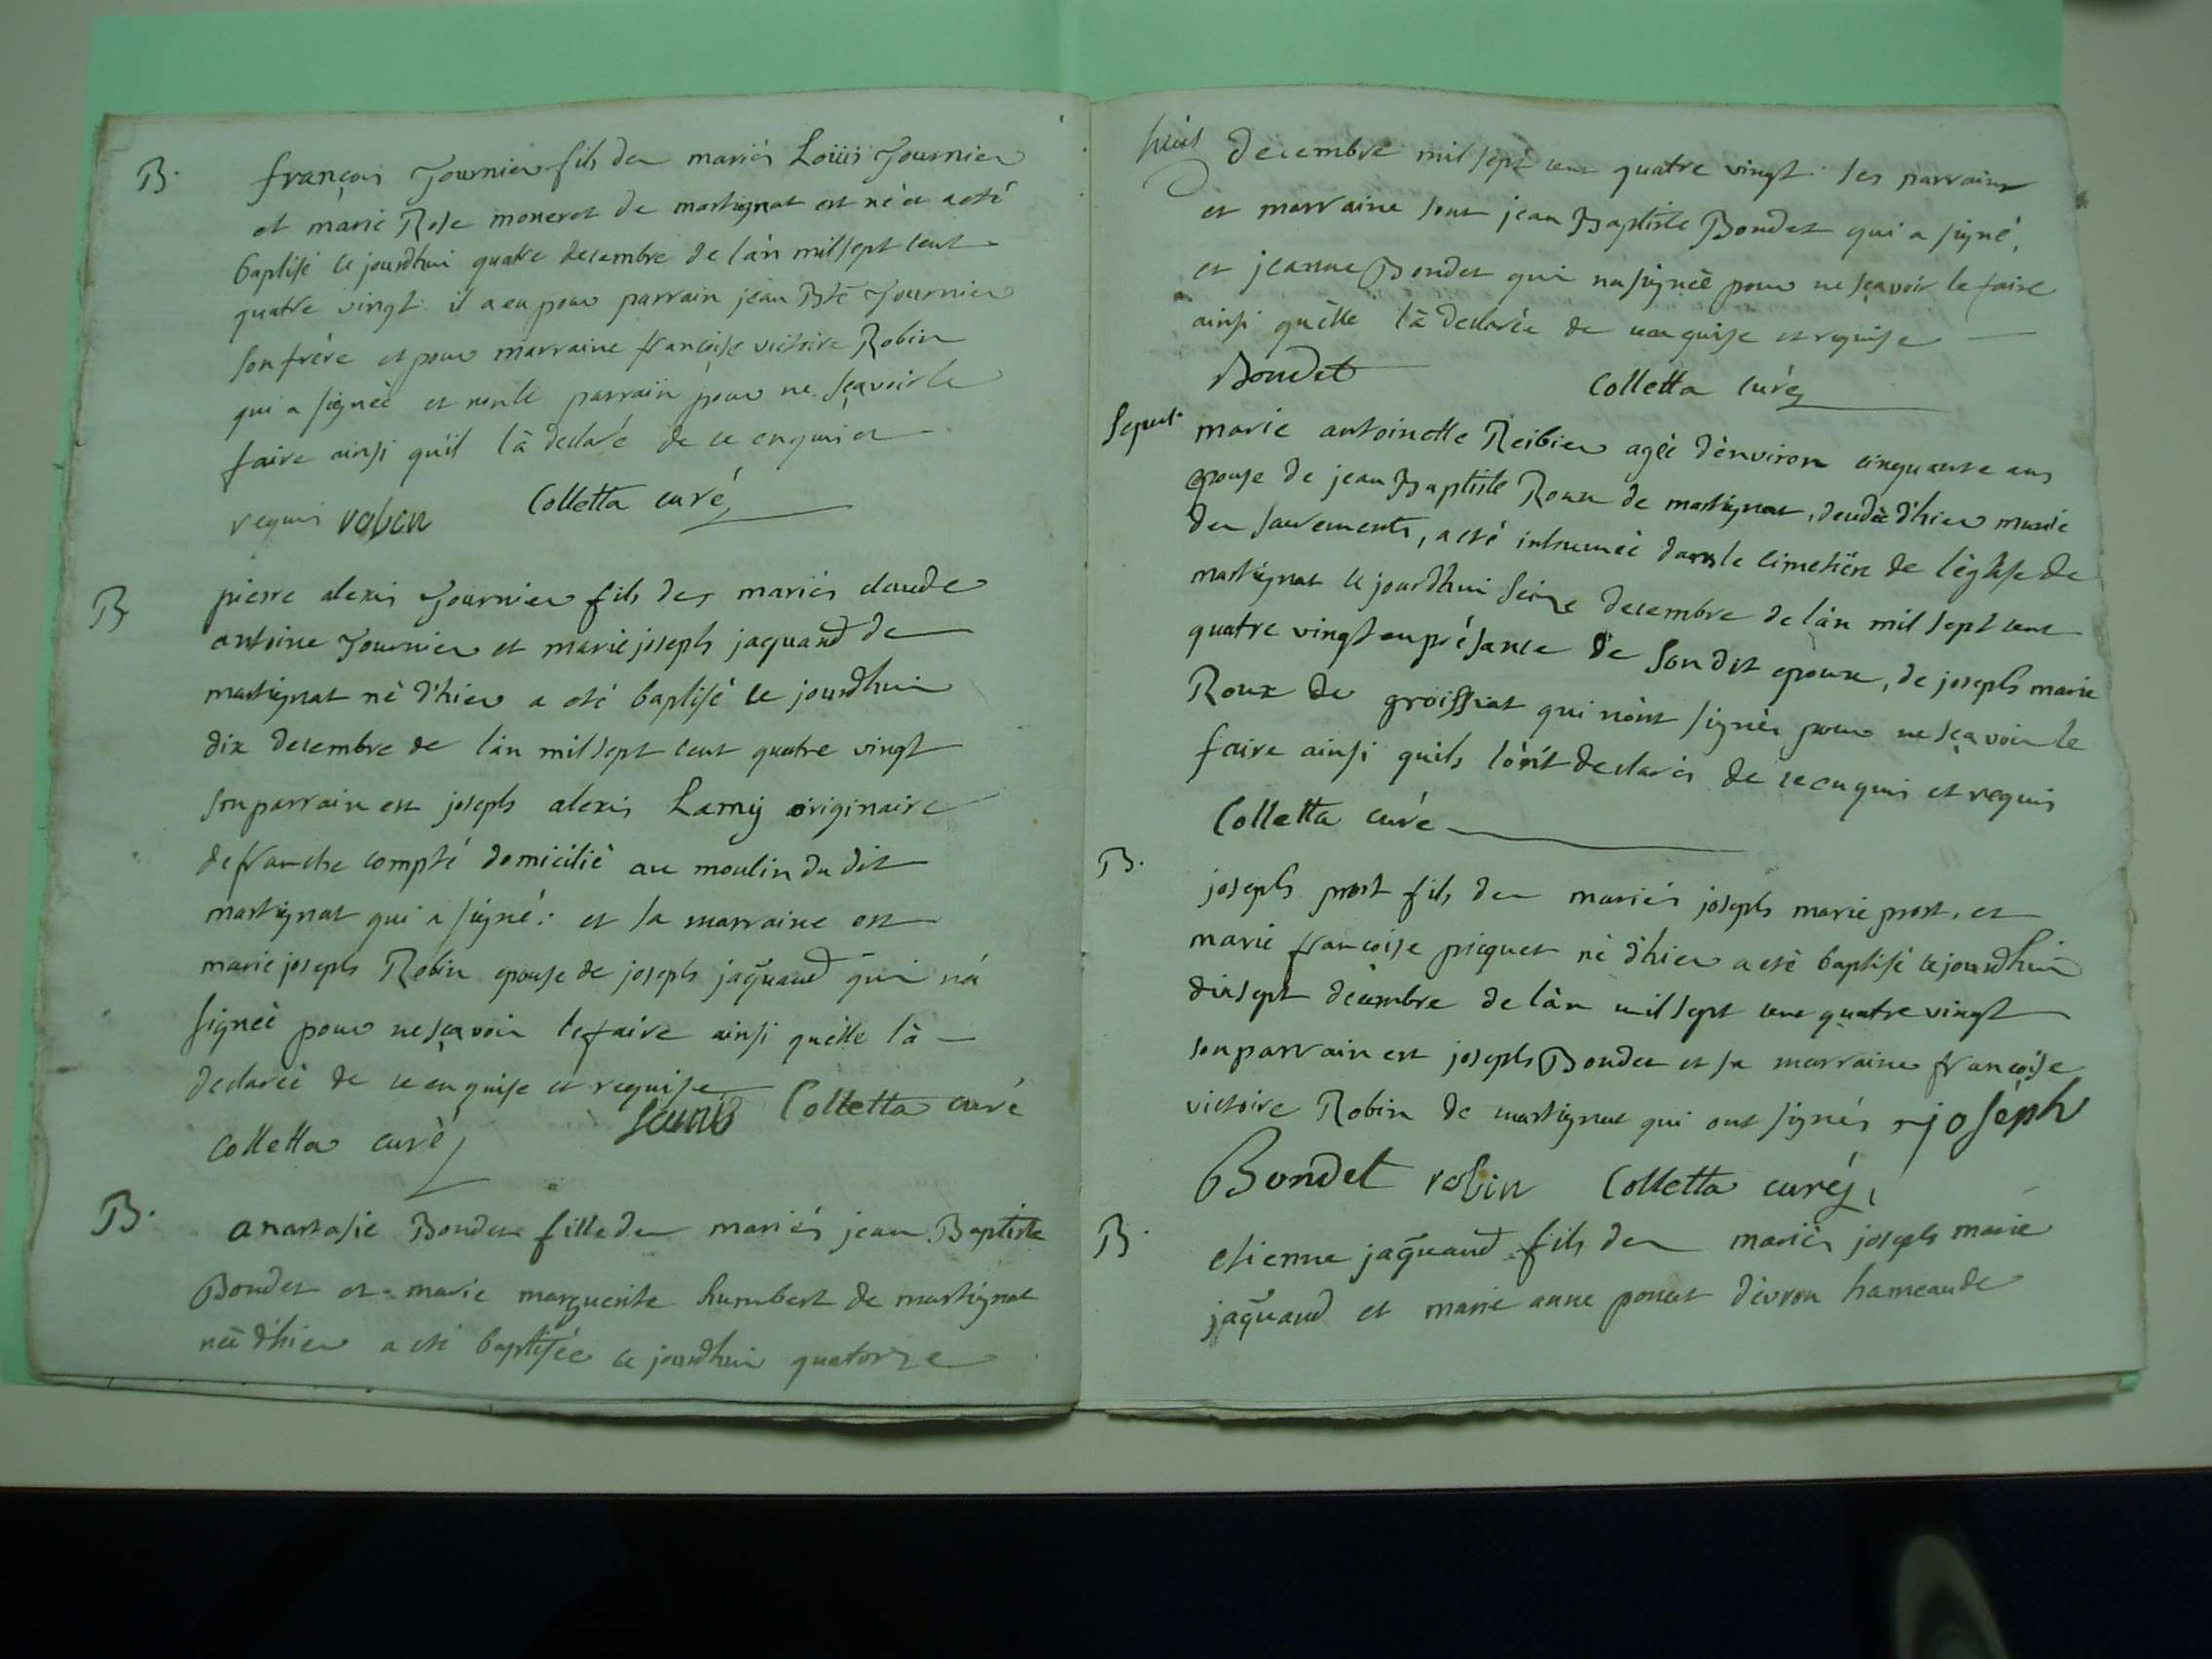 B. françois Journier fils des mariés Loüis Journier
et marie Rose moneret de martignat est né et a eté
baptisé ce jourdhui quatre decembre de l'an mil sept cent
quatre vingt il a eu pour parrain jean Bte Journier
son frère et pour marraine françoise victoire Robin
qui a signèè et non le parrain pour ne sçavoir le
faire ainsi qu'il l'à declaré de ce enquis et
requis robin Colletta curé
B pierre alexis Journier fils des mariés claude
antoine Journier et marie joseph jaquand de
martignat nè d'hier a eté baptisé ce jourdhui
dix decembre de l'an mil sept cent quatre vingt
son parrain est joseph alexis Lamÿ originaire
de franche compté domiciliè au moulin du dit
martignat qui a signé: et sa marraine est
marie joseph Robin epouse de joseph jaquand qui n'a
signèè pour ne sçavoir le faire ainsi qu'elle l'à
declarèè de ce enquise et requise Colletta curé
Colletta curè
B. anastasie Bondet fille des mariés jean Baptiste
Bondet et marie marguerite humbert de martignat
née d'hier a eté baptisée ce jourdhui quatorze
decembre mil sept cent quatre vingt ses parrains
et marraine sont jean Baptiste Bondet qui a signé,
et jeanne Bondet qui na signèè pour ne sçavoir le faire
ainsi qu'elle l'à declarée de ce enquise et requise
Bondet Colletta curé
Sepult. marie antoinette Reibier agèe d'environ cinquante ans
epouse de jean Baptiste Roux de martignat, decedèe d'hier munie
des sacrements, a eté inhumèè dans le cimetière de l'èglise de
martignat ce jourdhui seize decembre de l'an mil sept cent
quatre vingt en présance de son dit epoux, de joseph marie
Roux de groissiat qui n'ont signés pour ne sçavoir le
faire ainsi qu'ils l'ont declarés de ce enquis et requis
Colletta curé
B. joseph prost fils des mariés joseph marie prost, et
marie françoise picquet né d'hier a eté baptisé ce jourdhui
dixsept decembre de l'an mil sept cent quatre vingt
son parrain est joseph Bondet et sa marraine françoise
victoire Robin de martignat qui ont signés joseph
Bondet robin Colletta curé
B. etienne jaquand fils des mariés joseph marie
jaquand et marie anne poncet d'evron hameau de